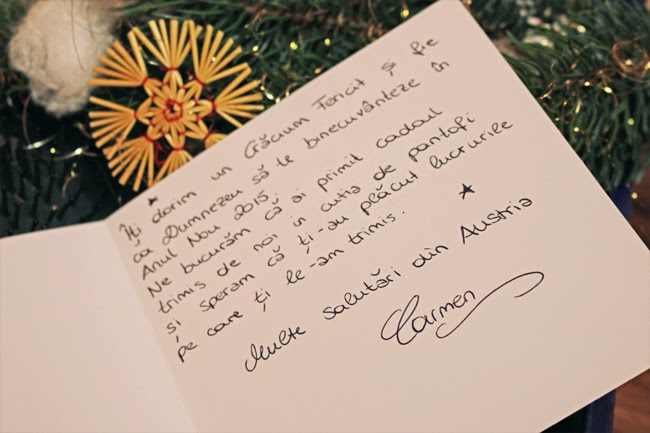 Îți dorim un Crăciun Fericit și fie
ca Dumnezeu să te binecuvânteze în
Anul Nou 2015.
Ne bucurăm că ai primit cadoul
trimis de noi în cutia de pantofi
și sperăm că ți-au plăcut lucrurile
pe care ți le-am trimis.
Multe salutări din Austria
Carmen